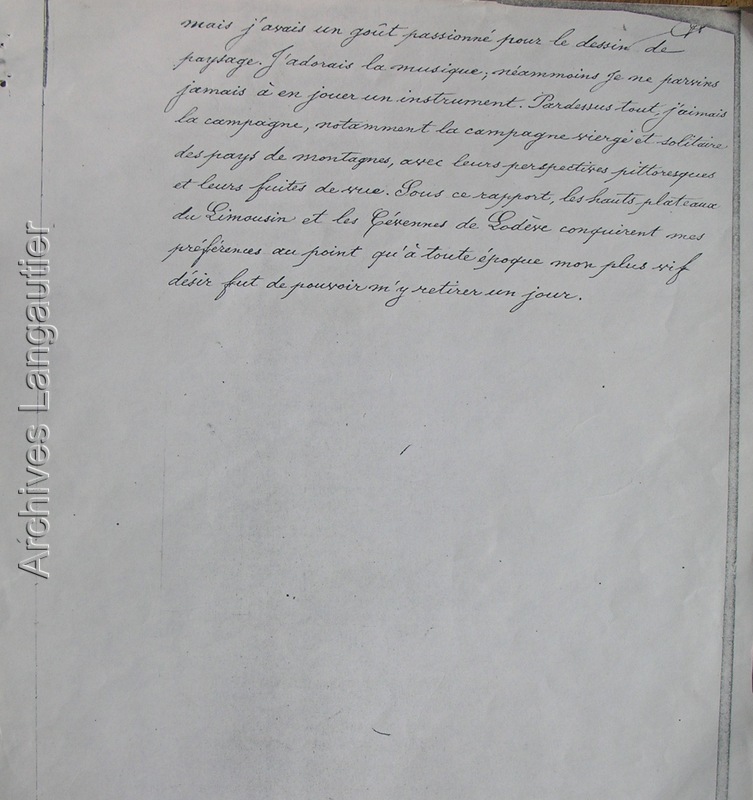 mais j'avais un goût passionné pour le dessin de
paysage. J'adorais la musique; néammoins je ne parvins
jamais à en jouer un instrument. Pardessus tout, j'aimais
la campagne, notamment la campagne vierge et solitaire
des pays de montagnes, avec leurs perspectives pittoresques
et leurs fuites de vue. Sous ce rapport, les hauts plateaux
du Limousin et les Cévennes de Lodève conquirent mes
préférences au point qu'à toute époque mon plus vif
désir fut de pouvoir m'y retirer un jour.
Archives Langautier